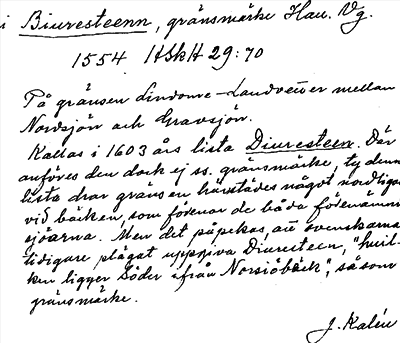 i Biuresteenn, gränsmärke Hau. Vg.
1554 HSkH 29:70
På gränsen Lindome-Landvetter mellan
Nordsjön och Gravsjön.
Kallas i 1603 års lista Diuresteen. Där
anföres den dock ej ss. gränsmärke, ty denna
lista drar gränsen härstädes något nordligare
vid bäcken, som förenar de båda förenämnda
sjöarna. Men det påpekas, att svenskarna
tidigare plägat uppgiva Diuresteen, "huil-
ken ligger söder ifrån Norsiöbäck", såsom
gränsmärke.
J. Kalén